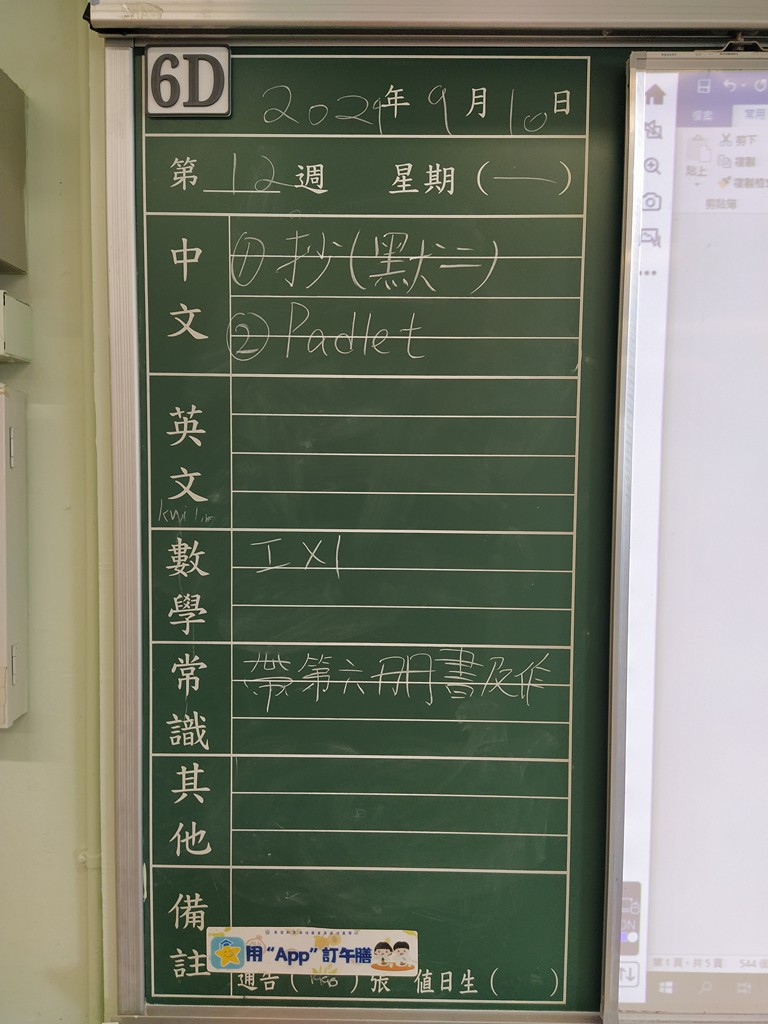 6D
2024年9月10日
第12週 星期(一)
中文
①抄(默二)
②Padlet
英文
數學
工X1
常識
帶第六冊書及作
其他
備註
用“App”訂午膳
通告( )張 值日生( )
檔案
常用
剪下
複製
貼上
剪貼簿
第1頁，共5頁